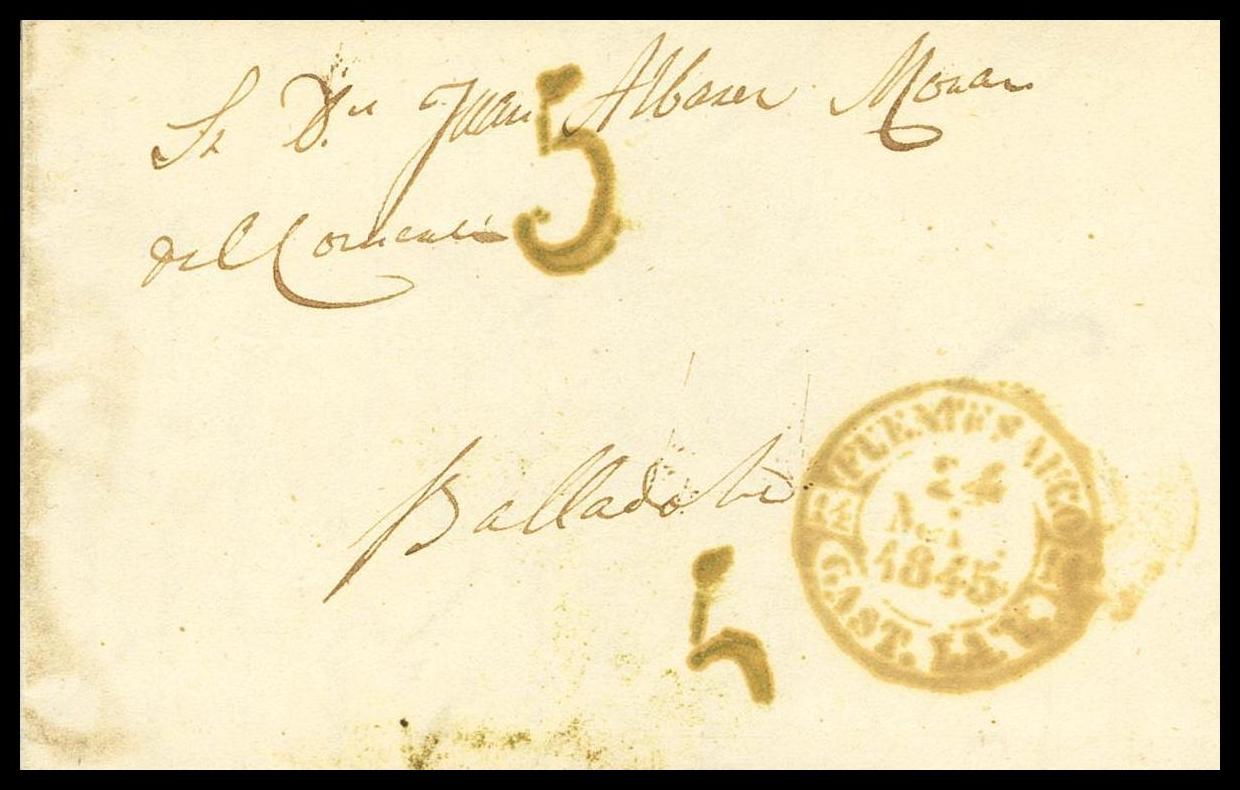 Sr Dn Juan Albarez Moran
del Comercio
5
Balladolid
5
FUENTESAUCO
24
1845
CAST. LA V.